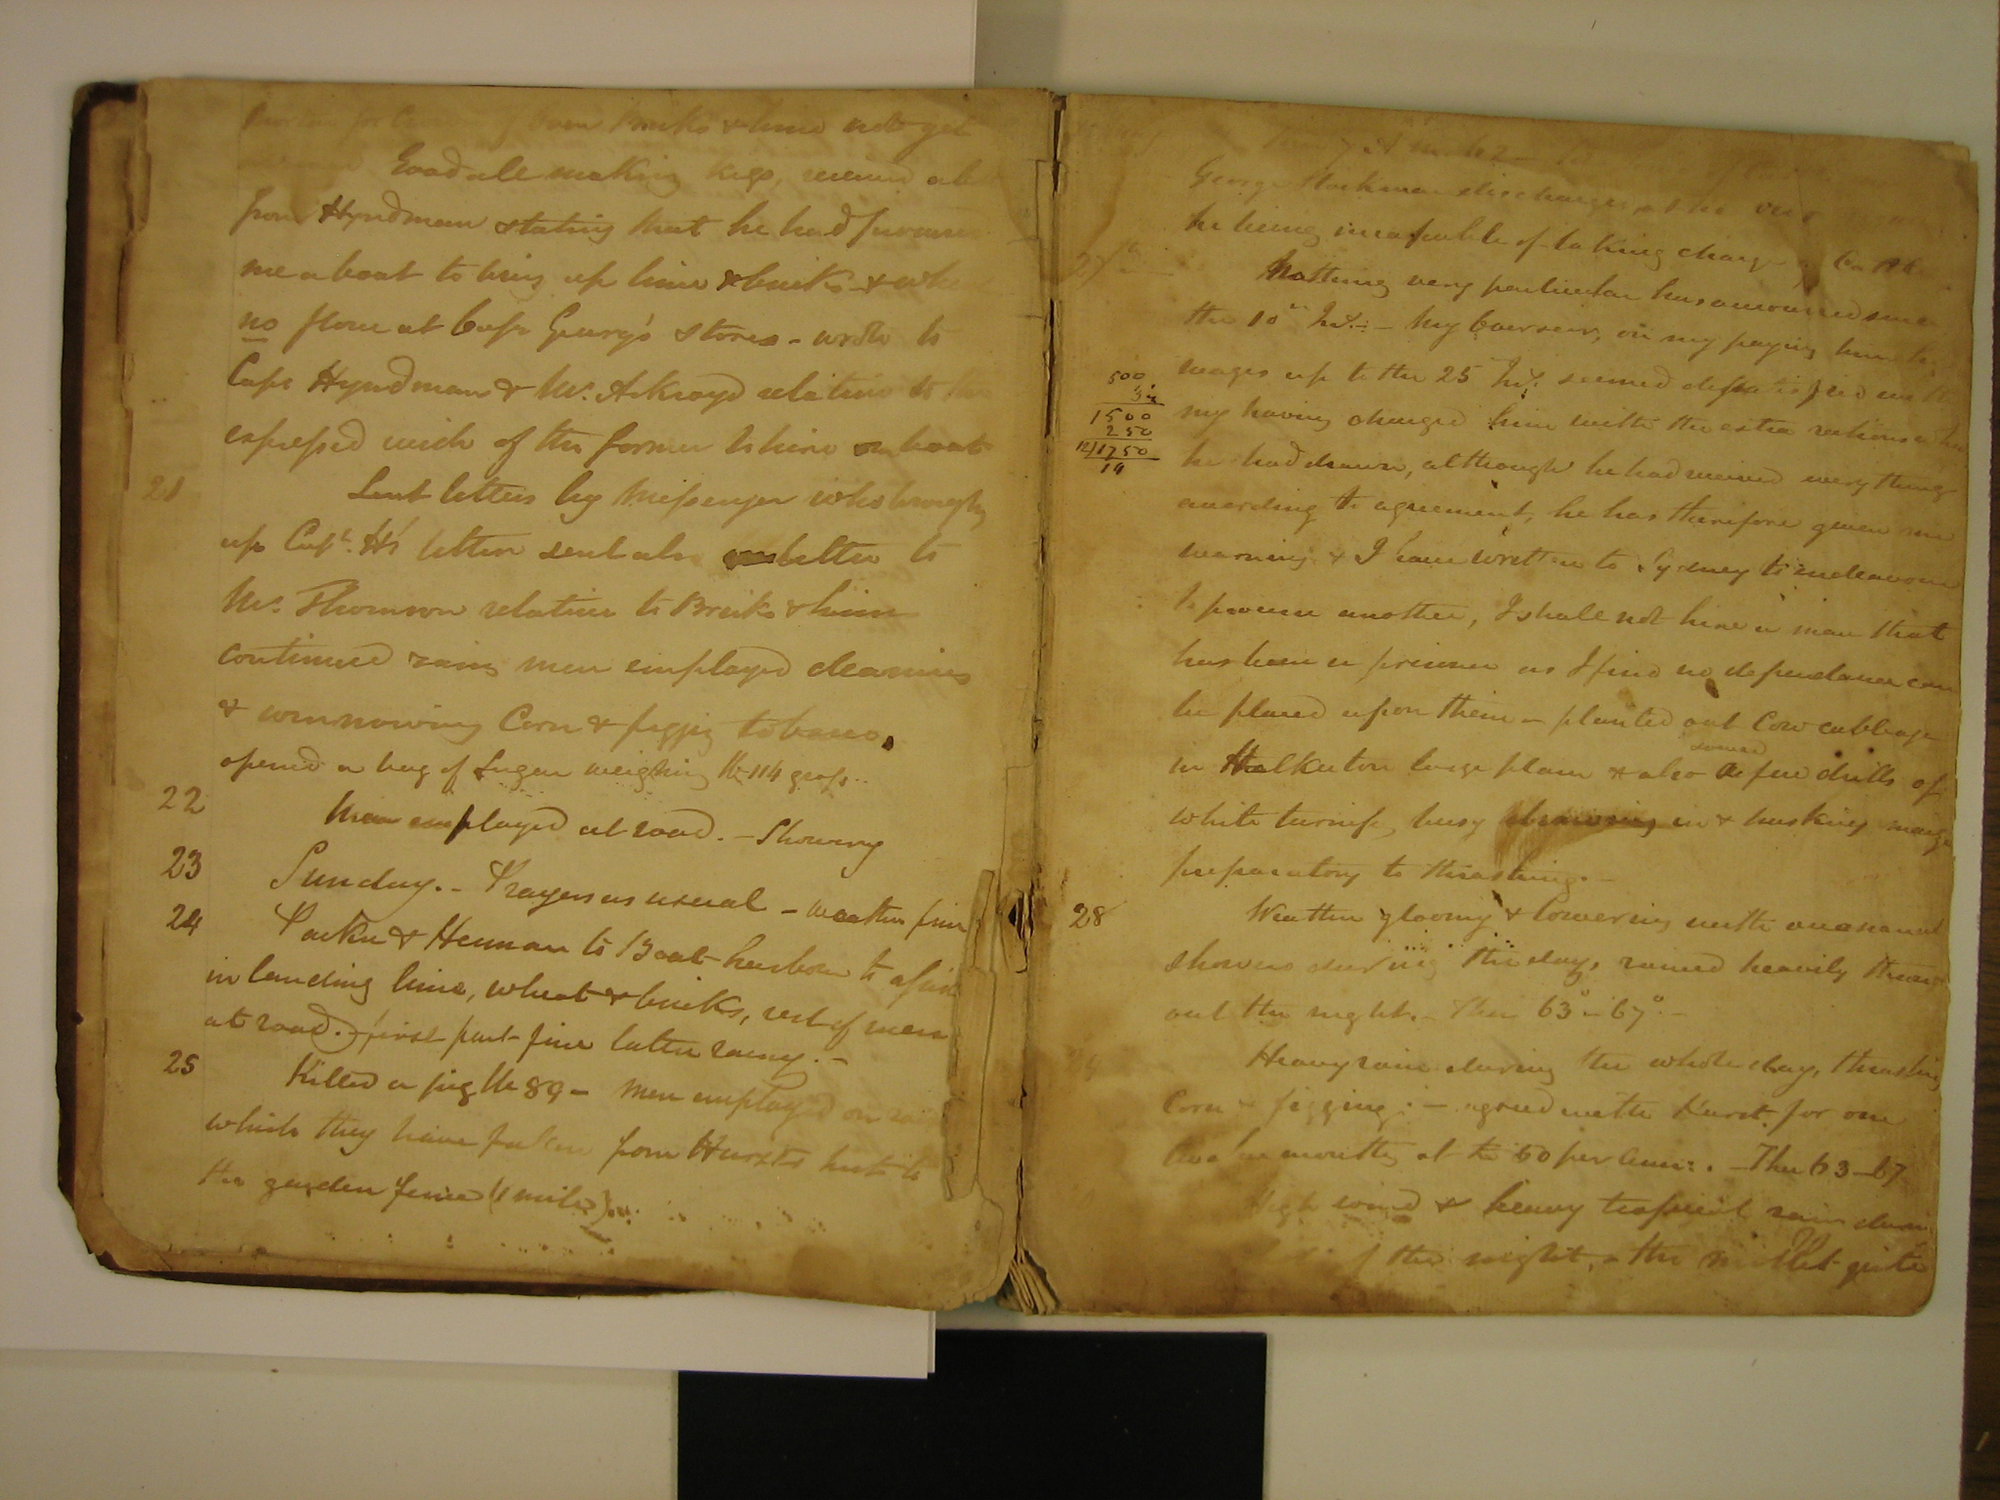 Bricks & lime not yet
Goodall making kegs, received a
from Hyndman stating that he had
me a boat to bring up lime & bricks - &
no flour at Capt Geary's stores - wrote to
Capt Hyndman & Mr. Ackroyd relative to the
expressed wish of the former to hire a boat
21 Sent letters by Messenger who brought
up Capt. H's letter sent also letter to
Mr. Thomson relative to Bricks & lime
continued rain men employed cleaning
& winnowing Corn & figging tobacco,
opened a bag of Sugar weighing lb 114 gross..
22 Men employed at road. - Showery
23 Sunday. - Prayers as usual - weather fine
24 & Henman to Boat harbour to assist
in landing lime, wheat & bricks, rest of men
at road. - first part fine latter rainy. -
25 Killed a pig lb 89 - men employed on
which they have from Hursts hut to
the garden fence (1 mile)..
George Stockman discharged at his own
he being incapable of taking charge of
27th Nothing very particular has occurred since
the 10th Inst: - My Overseer, on my paying him
wages up to the 25 Inst. seemed dissatisfied with
500
3½
1500
250
12/1750
my having charged him with the extra rations
he had drawn, although he had received every thing
according to agreement, he has therefore given me
warning & I have written to Sydney to endeavour
to procure another, I shall not hire a man that
has been a prisoner as I find no dependance can
be placed upon them - planted out Cow cabbage
sowed
in large plain & also a few drills of
white turnip, busy in & husking maize
preparatory to thrashing. -
28 Weather gloomy & lowering with occasional
showers during the day, rained heavily through
out the night. - Ther 63° - 67° -
Heavy rain during the whole day, thrashing
Corn & figging: - agreed with Hurst for one
twelve months at the 60 per Ann:. - Ther 63 - 67
High wind & heavy tropical rain during
of the night, - the quite